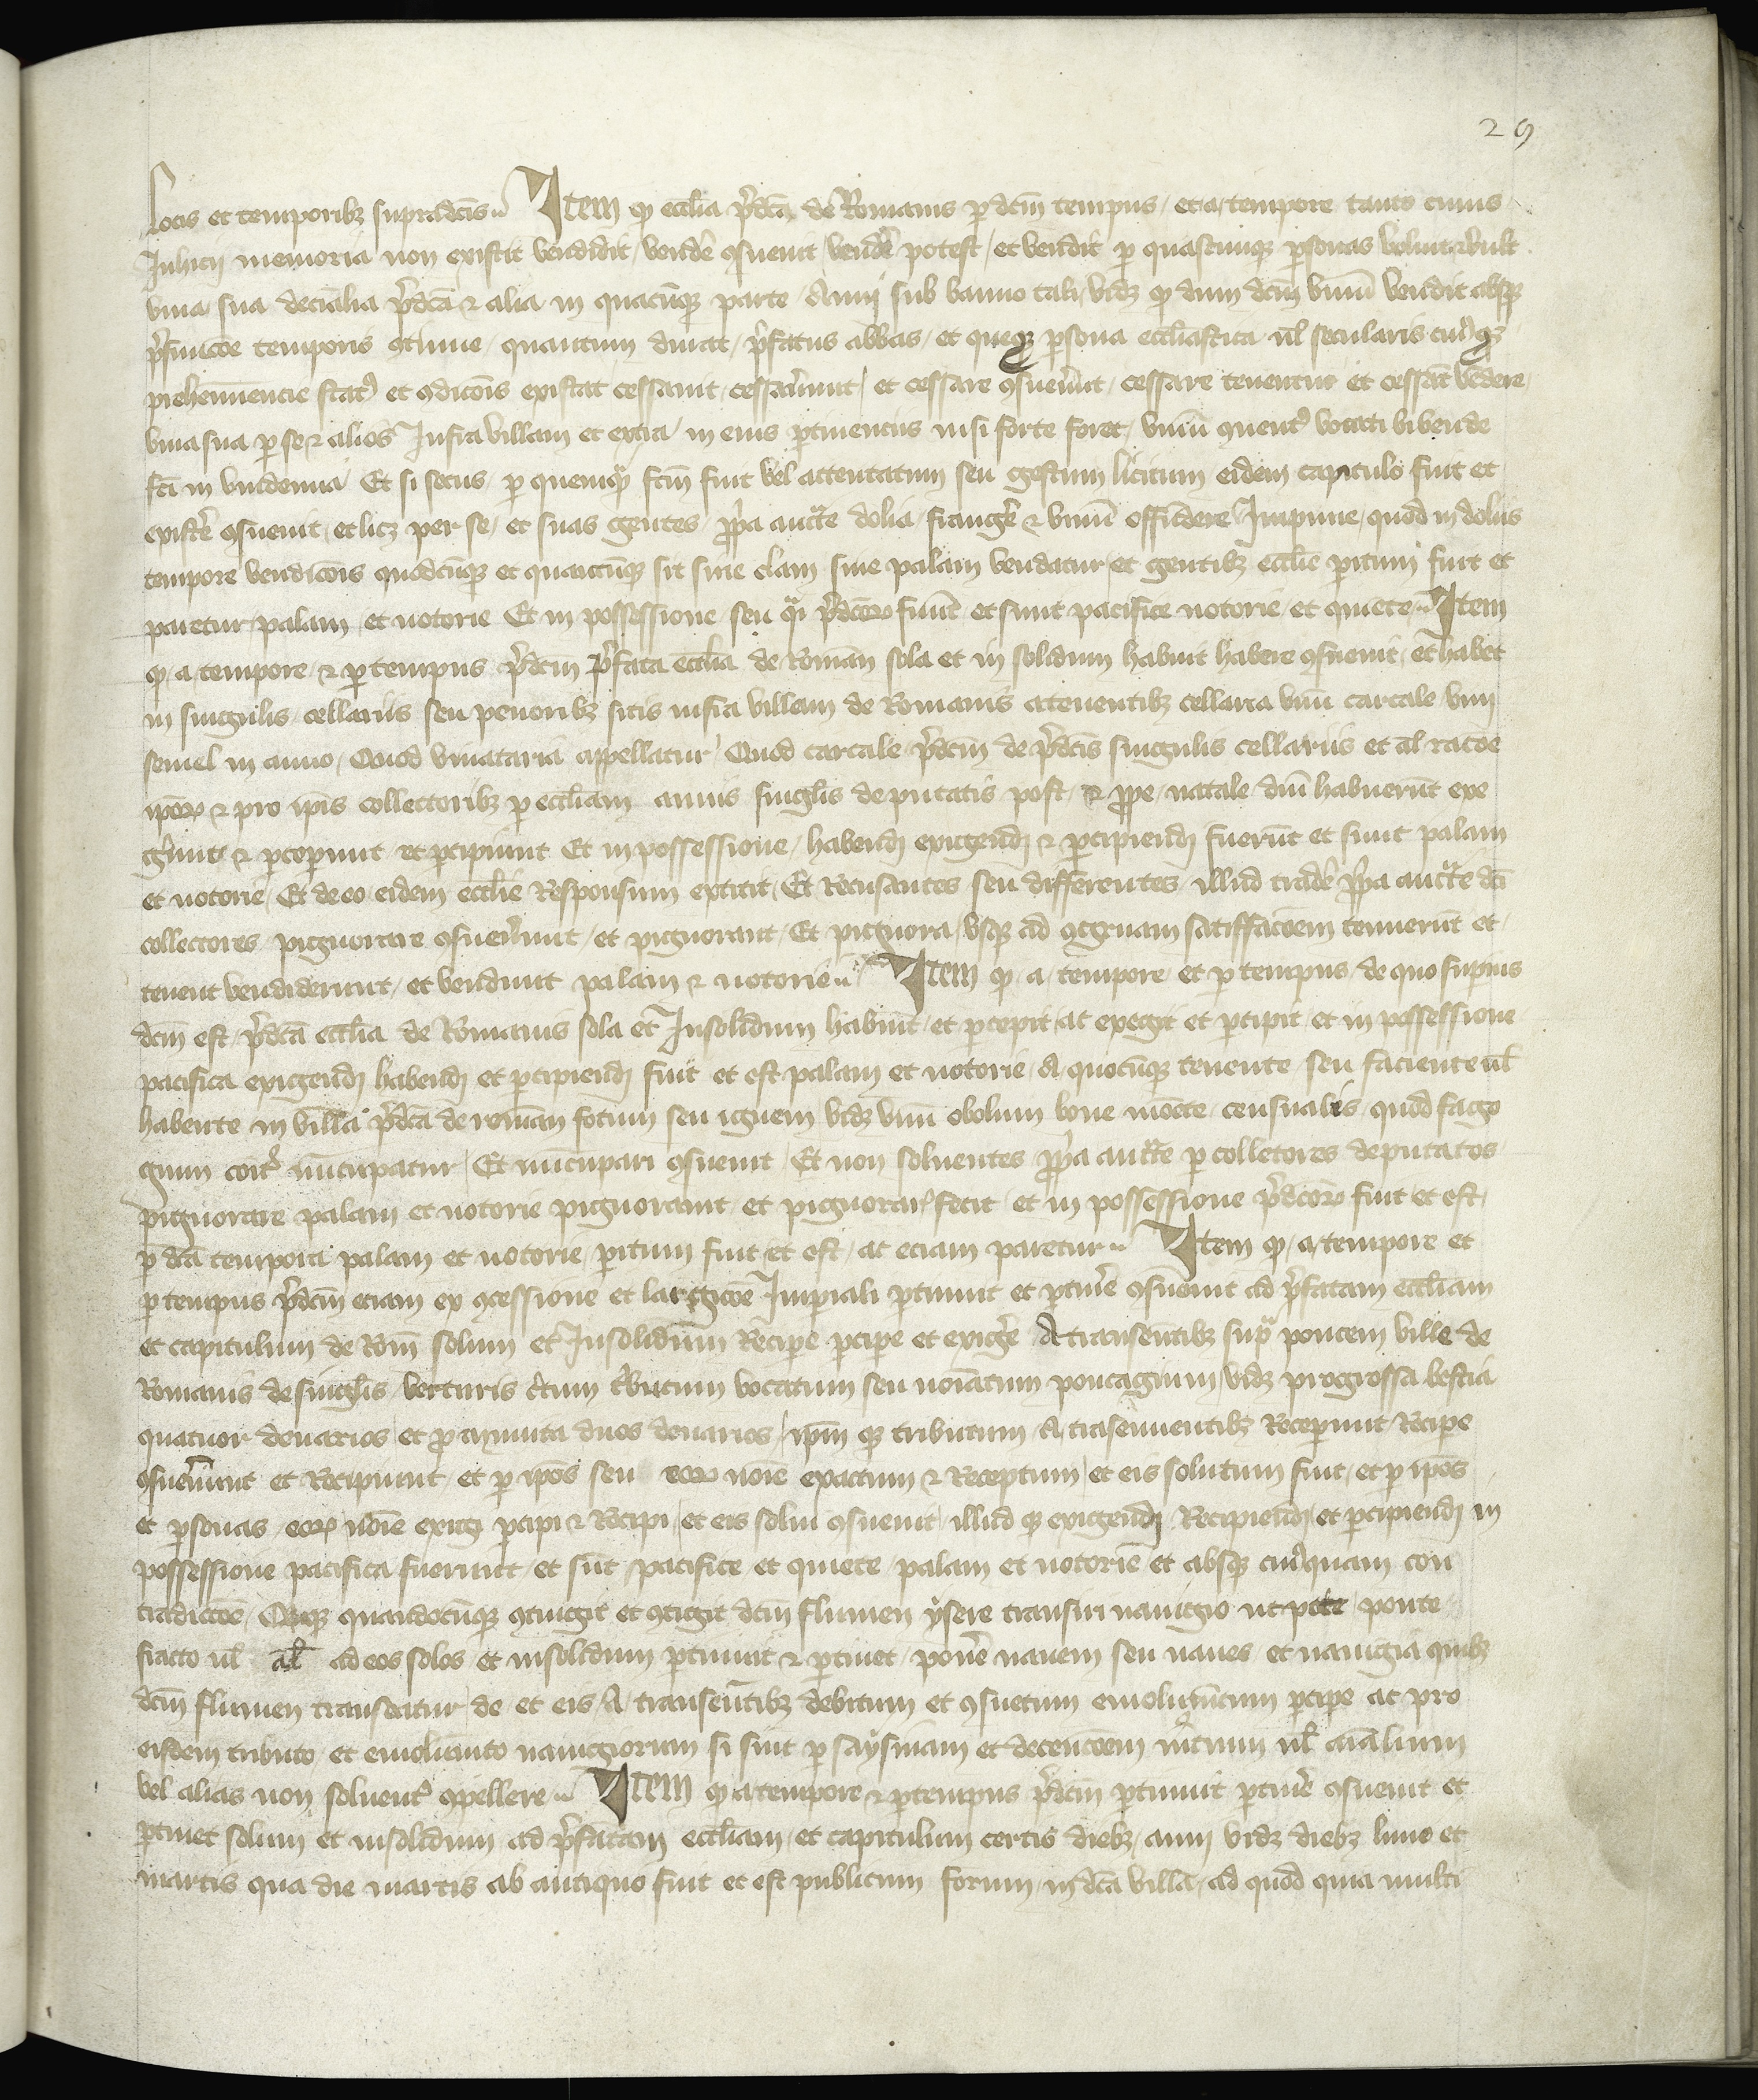 29
locis et temporibz supradcis Item qp ecclia predca de Romanis p dcm tempus et a tempore tanto cuius
Inhicij memoria non existit vendidit vende qsuevit vende potest et vendit p quascumqz psonas voluit vult
vina sua decimalia predca & alia in quacumqz parte Anni sub banno tali vidz qp dum dcm vinum vendit absqz
prefinicoe temporis qtinue quantum durat prefatus abbas et queqz psona ecclesiastica ul secularis cuiuscumqz
prehemencie stat et qdicois existat cessavit cessaverunt et cessare qsueverunt cessare tenentur et cessant vendere
vina sua p se & alios Infra villam et extra in eius ptinenciis nisi forte foret vinum vocati bibende
fci in vindemia Et si secus p quemqz fcm fuit vel attentatum seu gestum licitum eidem capitulo fuit et
existe qsuevit et licz per se et suas gentes ppria auctte dolia frange & vinum effundere Impune quod in dolus
tempore vendicois quodcumqz et quantumqz sit sive clam sive palam vendatur et gentibz ecclie paritum fuit et
paretur palam et notorie Et in possessione seu qi predcor fuit et sunt pacifice notorie et quiete Item
qp a tempore & p tempus predcm prefata ecclia de Roman sola et in solidum habuit habere qsuevit et habet
in singulis cellariis seu penoribz sitis infra villam de Romanis a tenentibz cellaria unum carcale vini
semel in anno Quod vinataria appellatur Quod carcale predcm de predcis singulis cellariis et al racoe
ipor & pro ipis collectoribz p eccliam annis singlis deputatis post & ppe natale dni habuerunt exe
gerunt & pceperunt et pcipiunt Et in possessione habendi exigendi & pcipiendi fuerunt et sunt palam
et notorie Et de eo eidem ecclie Responsum extitit Et Recusantes seu differentes illud trade ppria auctte dci
collectores pignorare qsueverunt et pignorant Et pignora usqz ad qgruam satisfaccoem tenuerunt et
tenent vendiderunt et vendunt palam & notorie Item qp a tempore et p tempus de quo supius
dcm est predca ecclia de Romanis sola et Insolidum habuit et pcepit ac exegit et pcipit et in possessione
pacifica exigendi habendi et pcipiendi fuit et est palam et notorie A quocumqz tenente seu faciente ul
habente in villa predca de roman focum seu ignem vidz unum obolum bone monete censualis quod fago
gium coit nuncupatur Et nuncupari qsuevit Et non solventes ppria auctte p colletores deputatos
pignorare palam et notorie pignoravit et pignorar fecit et in possessione predcor fuit et est
p dca tempora palam et notorie paritum fuit et est ac eciam paretur Item qp a tempore et
p tempus predcm eciam ex qcessione et largicoe Imperiali ptinuit et ptine qsuevit ad prefatam eccliam
et capitulum de Rom solum et Insolidum Recipe pcipe et exige A transeuntibz supra pontem ville de
Romanis de singlis vecturis ctum tbutum vocatum seu noiatum pontagium vidz pro grossa bestia
quatuor denarios et pro minuta duos denarios ipm qz tributum A transeuntibz Receperunt Recipe
qsueverunt et Recipiunt et p ipos seu eor noie exactum & Receptum et eis solutum fuit et p ipos
et psonas eor noie exigi pcipi & Recipi et eis solui qsuevit illud qz exigendi Recipiendi et pcipiendi in
possessione pacifica fuerunt et sunt pacifice et quiete palam et notorie et absqz cuiusquam con
tradiccoe Quqz quandocumqz qtingit et qtigit dcm flumen ysere transiri navigio ut pote ponte
fracto ul al ad eos solos et insolidum ptinuit & ptinet pone navem seu naves et navigia quibz
dcm flumen transeatur de et eis A transeuntibz debitum et qsuetum emolumentum pcipe ac pro
eisdem tributo et emolumento navigiorum si sint p saysinam et detencoem rerum ul aialium
vel alias non solvent qpellere Item qp a tempore & p tempus predcm ptinuit ptine qsuevit et
ptinet solum et insolidum ad prefatam eccliam et capitulum certis diebz anni vidz diebz lune et
martis qua die martis ab antiquo fuit et est publicum forum in dca villa ad quod quia multi